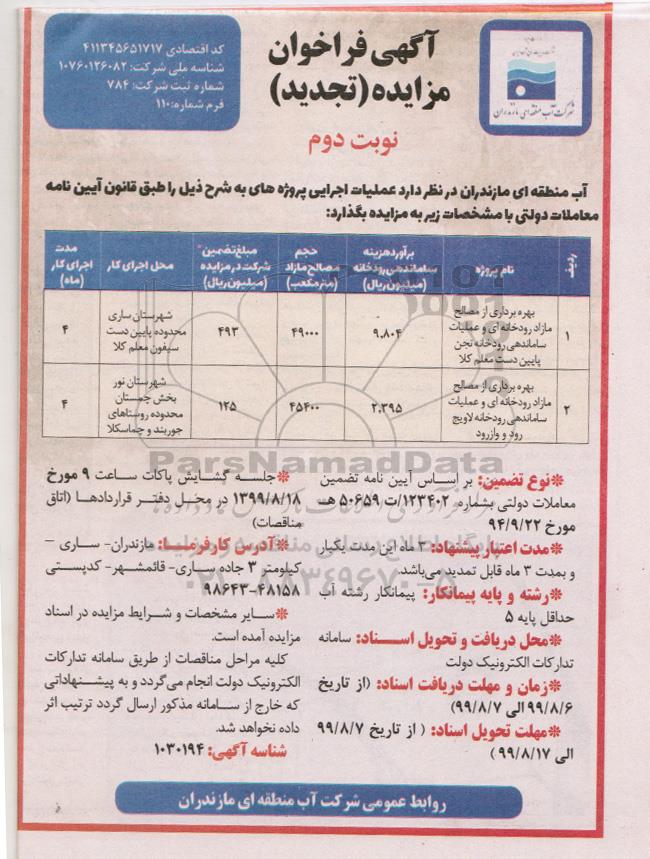 آگهی فراخوان
مزایده (تجدید)
نوبت دوم
شرکت آب منطقه ای مازندران
کد اقتصادی ۴۱۱۳۴۵۶۵۱۷۱۷
شناسه ملی شرکت: ۱۰۷۶۰۱۲۶۰۸۲
شماره ثبت شرکت: ۷۸۴
فرم شماره: ۱۱۰
آب منطقه ای مازندران در نظر دارد عملیات اجرایی پروژه های به شرح ذیل را طبق قانون آیین نامه
معاملات دولتی با مشخصات زیر به مزایده بگذارد:
ردیف
نام پروژه
برآورد هزینه
ساماندهی رودخانه
(میلیون ریال)
حجم
مصالح مازاد
(متر مکعب)
مبلغ تضمین
شرکت در مزایده
(میلیون ریال)
محل اجرای کار
مدت
اجرای کار
(ماه)
۱
بهره برداری از مصالح
مازاد رودخانه ای و عملیات
ساماندهی رودخانه تجن
پایین دست معلم کلا
۹.۸۰۴
۴۹۰۰۰
۴۹۳
شهرستان ساری
محدوده پایین دست
سیفون معلم کلا
۴
۲
بهره برداری از مصالح
مازاد رودخانه ای و عملیات
ساماندهی رودخانه لاویج
رود و وازرود
۲.۳۹۵
۴۵۴۰۰
۱۲۵
شهرستان نور
بخش چمستان
محدوده روستاهای
جوربند و چماسکلا
۴
ParsNamadData
*نوع تضمین: بر اساس آیین نامه تضمین
معاملات دولتی بشماره ۱۲۳۴۰۲/ت ۵۰۶۵۹ هـ
مورخ ۹۴/۹/۲۲
*مدت اعتبار پیشنهاد: ۳ ماه این مدت یکبار
و بمدت ۳ ماه قابل تمدید می‌باشد.
*رشته و پایه پیمانکار: پیمانکار رشته آب
حداقل پایه ۵
*محل دریافت و تحویل اسناد: سامانه
تدارکات الکترونیک دولت
*زمان و مهلت دریافت اسناد: (از تاریخ
۹۹/۸/۶ الی ۹۹/۸/۷)
*مهلت تحویل اسناد: ( از تاریخ ۹۹/۸/۷
الی ۹۹/۸/۱۷ )
*جلسه گشایش پاکات ساعت ۹ مورخ
۱۳۹۹/۸/۱۸ در محل دفتر قراردادها (اتاق
مناقصات)
*آدرس کارفرما: مازندران- ساری –
کیلومتر ۳ جاده ساری- قائمشهر- کدپستی
۴۸۱۵۸-۹۸۶۴۳
*سایر مشخصات و شرایط مزایده در اسناد
مزایده آمده است.
کلیه مراحل مناقصات از طریق سامانه تدارکات
الکترونیک دولت انجام می‌گردد و به پیشنهاداتی
که خارج از سامانه مذکور ارسال گردد ترتیب اثر
داده نخواهد شد.
شناسه آگهی: ۱۰۳۰۱۹۴
روابط عمومی شرکت آب منطقه ای مازندران